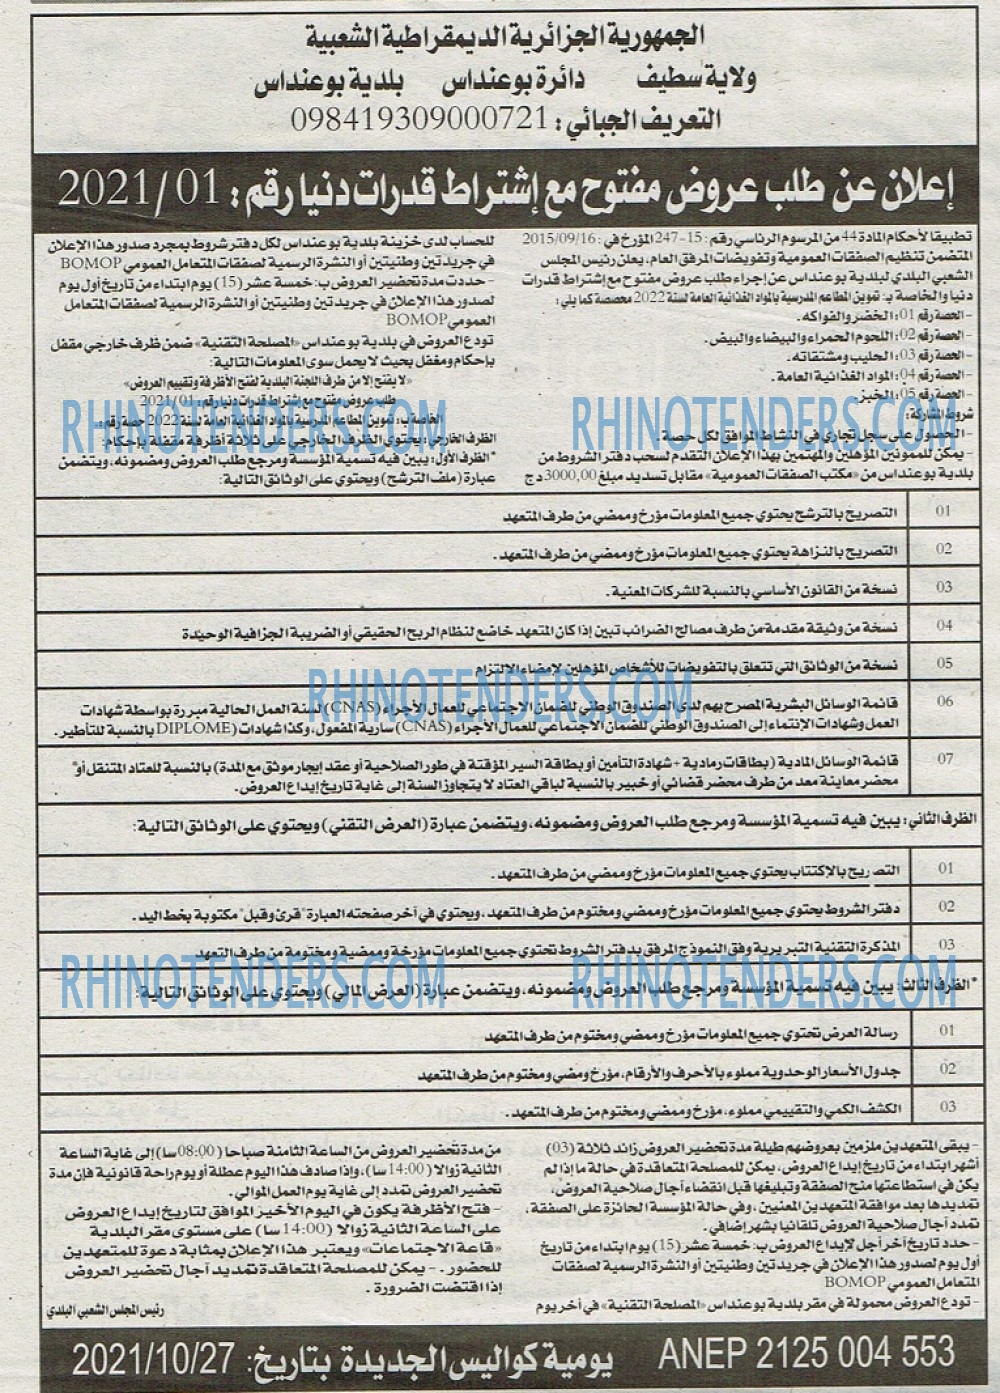 الجمهورية الجزائرية الديمقراطية الشعبية
ولاية سطيف دائرة بوعنداس بلدية بوعنداس
التعريف الجبائي: 098419309000721
إعلان عن طلب عروض مفتوح مع إشتراط قدرات دنيا رقم: 2021/01
تطبيقا لأحكام المادة 44 من المرسوم الرئاسي رقم: 15-247 المؤرخ في: 2015/09/16
المتضمن تنظيم الصفقات العمومية وتفويضات المرفق العام، يعلن رئيس المجلس
الشعبي البلدي لبلدية بوعنداس عن إجراء طلب عروض مفتوح مع إشتراط قدرات
دنيا والخاصة بـ: تموين المطاعم المدرسية بالمواد الغذائية العامة لسنة 2022 محصصة كما يلي:
- الحصة رقم 01: الخضر والفواكه.
- الحصة رقم 02: اللحوم الحمراء والبيضاء والبيض.
- الحصة رقم 03: الحليب ومشتقاته.
- الحصة رقم 04: المواد الغذائية العامة.
- الحصة رقم 05: الخبز
شروط المشاركة:
- الحصول على سجل تجاري في النشاط الموافق لكل حصة.
- يمكن للممونين المؤهلين والمهتمين بهذا الإعلان التقدم لسحب دفتر الشروط من
بلدية بوعنداس من «مكتب الصفقات العمومية» مقابل تسديد مبلغ 3000,00 دج
للحساب لدى خزينة بلدية بوعنداس لكل دفتر شروط بمجرد صدور هذا الإعلان
في جريدتين وطنيتين أو النشرة الرسمية لصفقات المتعامل العمومي BOMOP
- حددت مدة تحضير العروض ب: خمسة عشر (15) يوم ابتداء من تاريخ أول يوم
لصدور هذا الإعلان في جريدتين وطنيتين أو النشرة الرسمية لصفقات المتعامل
العمومي BOMOP
تودع العروض في بلدية بوعنداس «المصلحة التقنية» ضمن ظرف خارجي مقفل
بإحكام ومغفل بحيث لا يحمل سوى المعلومات التالية:
«لا يفتح إلا من طرف اللجنة البلدية لفتح الأظرفة وتقييم العروض»
طلب عروض مفتوح مع إشتراط قدرات دنيا رقم: 2021/01
الخاصة بـ: تموين المطاعم المدرسية بالمواد الغذائية العامة لسنة 2022 حصة رقم:..
الظرف الخارجي: يحتوي الظرف الخارجي على ثلاثة أظرفة مقفلة بإحكام:
*الظرف الأول: يبين فيه تسمية المؤسسة ومرجع طلب العروض ومضمونه، ويتضمن
عبارة (ملف الترشح) ويحتوي على الوثائق التالية:
RHINOTENDERS.COM RHINOTENDERS.COM
01 التصريح بالترشح يحتوي جميع المعلومات مؤرخ وممضي من طرف المتعهد
02 التصريح بالنزاهة يحتوي جميع المعلومات مؤرخ وممضي من طرف المتعهد.
03 نسخة من القانون الأساسي بالنسبة للشركات المعنية.
04 نسخة من وثيقة مقدمة من طرف مصالح الضرائب تبين إذا كان المتعهد خاضع لنظام الربح الحقيقي أو الضريبة الجزافية الوحيدة
05 نسخة من الوثائق التي تتعلق بالتفويضات للأشخاص المؤهلين لإمضاء الالتزام
RHINOTENDERS.COM
06 قائمة الوسائل البشرية المصرح بهم لدى الصندوق الوطني للضمان الاجتماعي للعمال الأجراء (CNAS) لسنة العمل الحالية مبررة بواسطة شهادات
العمل وشهادات الإنتماء إلى الصندوق الوطني للضمان الاجتماعي للعمال الأجراء (CNAS) سارية المفعول، وكذا شهادات (DIPLOME) بالنسبة للتأطير.
07 قائمة الوسائل المادية (بطاقات رمادية + شهادة التأمين أو بطاقة السير المؤقتة في طور الصلاحية أو عقد إيجار موثق مع المدة) بالنسبة للعتاد المتنقل أو*
محضر معاينة معد من طرف محضر قضائي أو خبير بالنسبة لباقي العتاد لا يتجاوز السنة إلى غاية تاريخ إيداع العروض.
الظرف الثاني: يبين فيه تسمية المؤسسة ومرجع طلب العروض ومضمونه، ويتضمن عبارة (العرض التقني) ويحتوي على الوثائق التالية:
01 التصريح بالإكتتاب يحتوي جميع المعلومات مؤرخ وممضي من طرف المتعهد.
02 دفتر الشروط يحتوي جميع المعلومات مؤرخ وممضي ومختوم من طرف المتعهد، ويحتوي في آخر صفحته العبارة "قرئ وقبل" مكتوبة بخط اليد.
03 المذكرة التقنية التبريرية وفق النموذج المرفق بدفتر الشروط تحتوي جميع المعلومات مؤرخة وممضية ومختومة من طرف المتعهد
RHINOTENDERS.COM RHINOTENDERS.COM
*الظرف الثالث: يبين فيه تسمية المؤسسة ومرجع طلب العروض ومضمونه، ويتضمن عبارة (العرض المالي) ويحتوي على الوثائق التالية:
01 رسالة العرض تحتوي جميع المعلومات مؤرخ وممضي و مختوم من طرف المتعهد
02 جدول الأسعار الوحدوية مملوء بالأحرف والأرقام، مؤرخ ومضي ومختوم من طرف المتعهد
03 الكشف الكمي والتقييمي مملوء، مؤرخ وممضي ومختوم من طرف المتعهد.
- يبقى المتعهدين ملزمين بعروضهم طيلة مدة تحضير العروض زائد ثلاثة (03)
أشهر ابتداء من تاريخ إيداع العروض، يمكن للمصلحة المتعاقدة في حالة ما إذا لم
يكن في استطاعتها منح الصفقة وتبليغها قبل انقضاء آجال صلاحية العروض،
تمديدها بعد موافقة المتعهدين المعنيين، وفي حالة المؤسسة الحائزة على الصفقة،
تمدد آجال صلاحية العروض تلقائيا بشهر إضافي.
- حدد تاريخ آخر أجل لإيداع العروض ب: خمسة عشر (15) يوم ابتداء من تاريخ
أول يوم لصدور هذا الإعلان في جريدتين وطنيتين أو النشرة الرسمية لصفقات
المتعامل العمومي BOMOP
- تودع العروض محمولة في مقر بلدية بوعنداس «المصلحة التقنية» في آخر يوم
من مدة تحضير العروض من الساعة الثامنة صباحا (08:00 سا) إلى غاية الساعة
الثانية زوالا (14:00 سا)، وإذا صادف هذا اليوم عطلة أو يوم راحة قانونية فإن مدة
تحضير العروض تمدد إلى غاية يوم العمل الموالي.
- فتح الأظرفة يكون في اليوم الأخير الموافق لتاريخ إيداع العروض
على الساعة الثانية زوالا (14:00 سا) على مستوى مقر البلدية
«قاعة الاجتماعات» ويعتبر هذا الإعلان بمثابة دعوة للمتعهدين
للحضور. - يمكن للمصلحة المتعاقدة تمديد آجال تحضير العروض
إذا اقتضت الضرورة.
رئيس المجلس الشعبي البلدي
ANEP 2125 004 553 يومية كواليس الجديدة بتاريخ: 2021/10/27